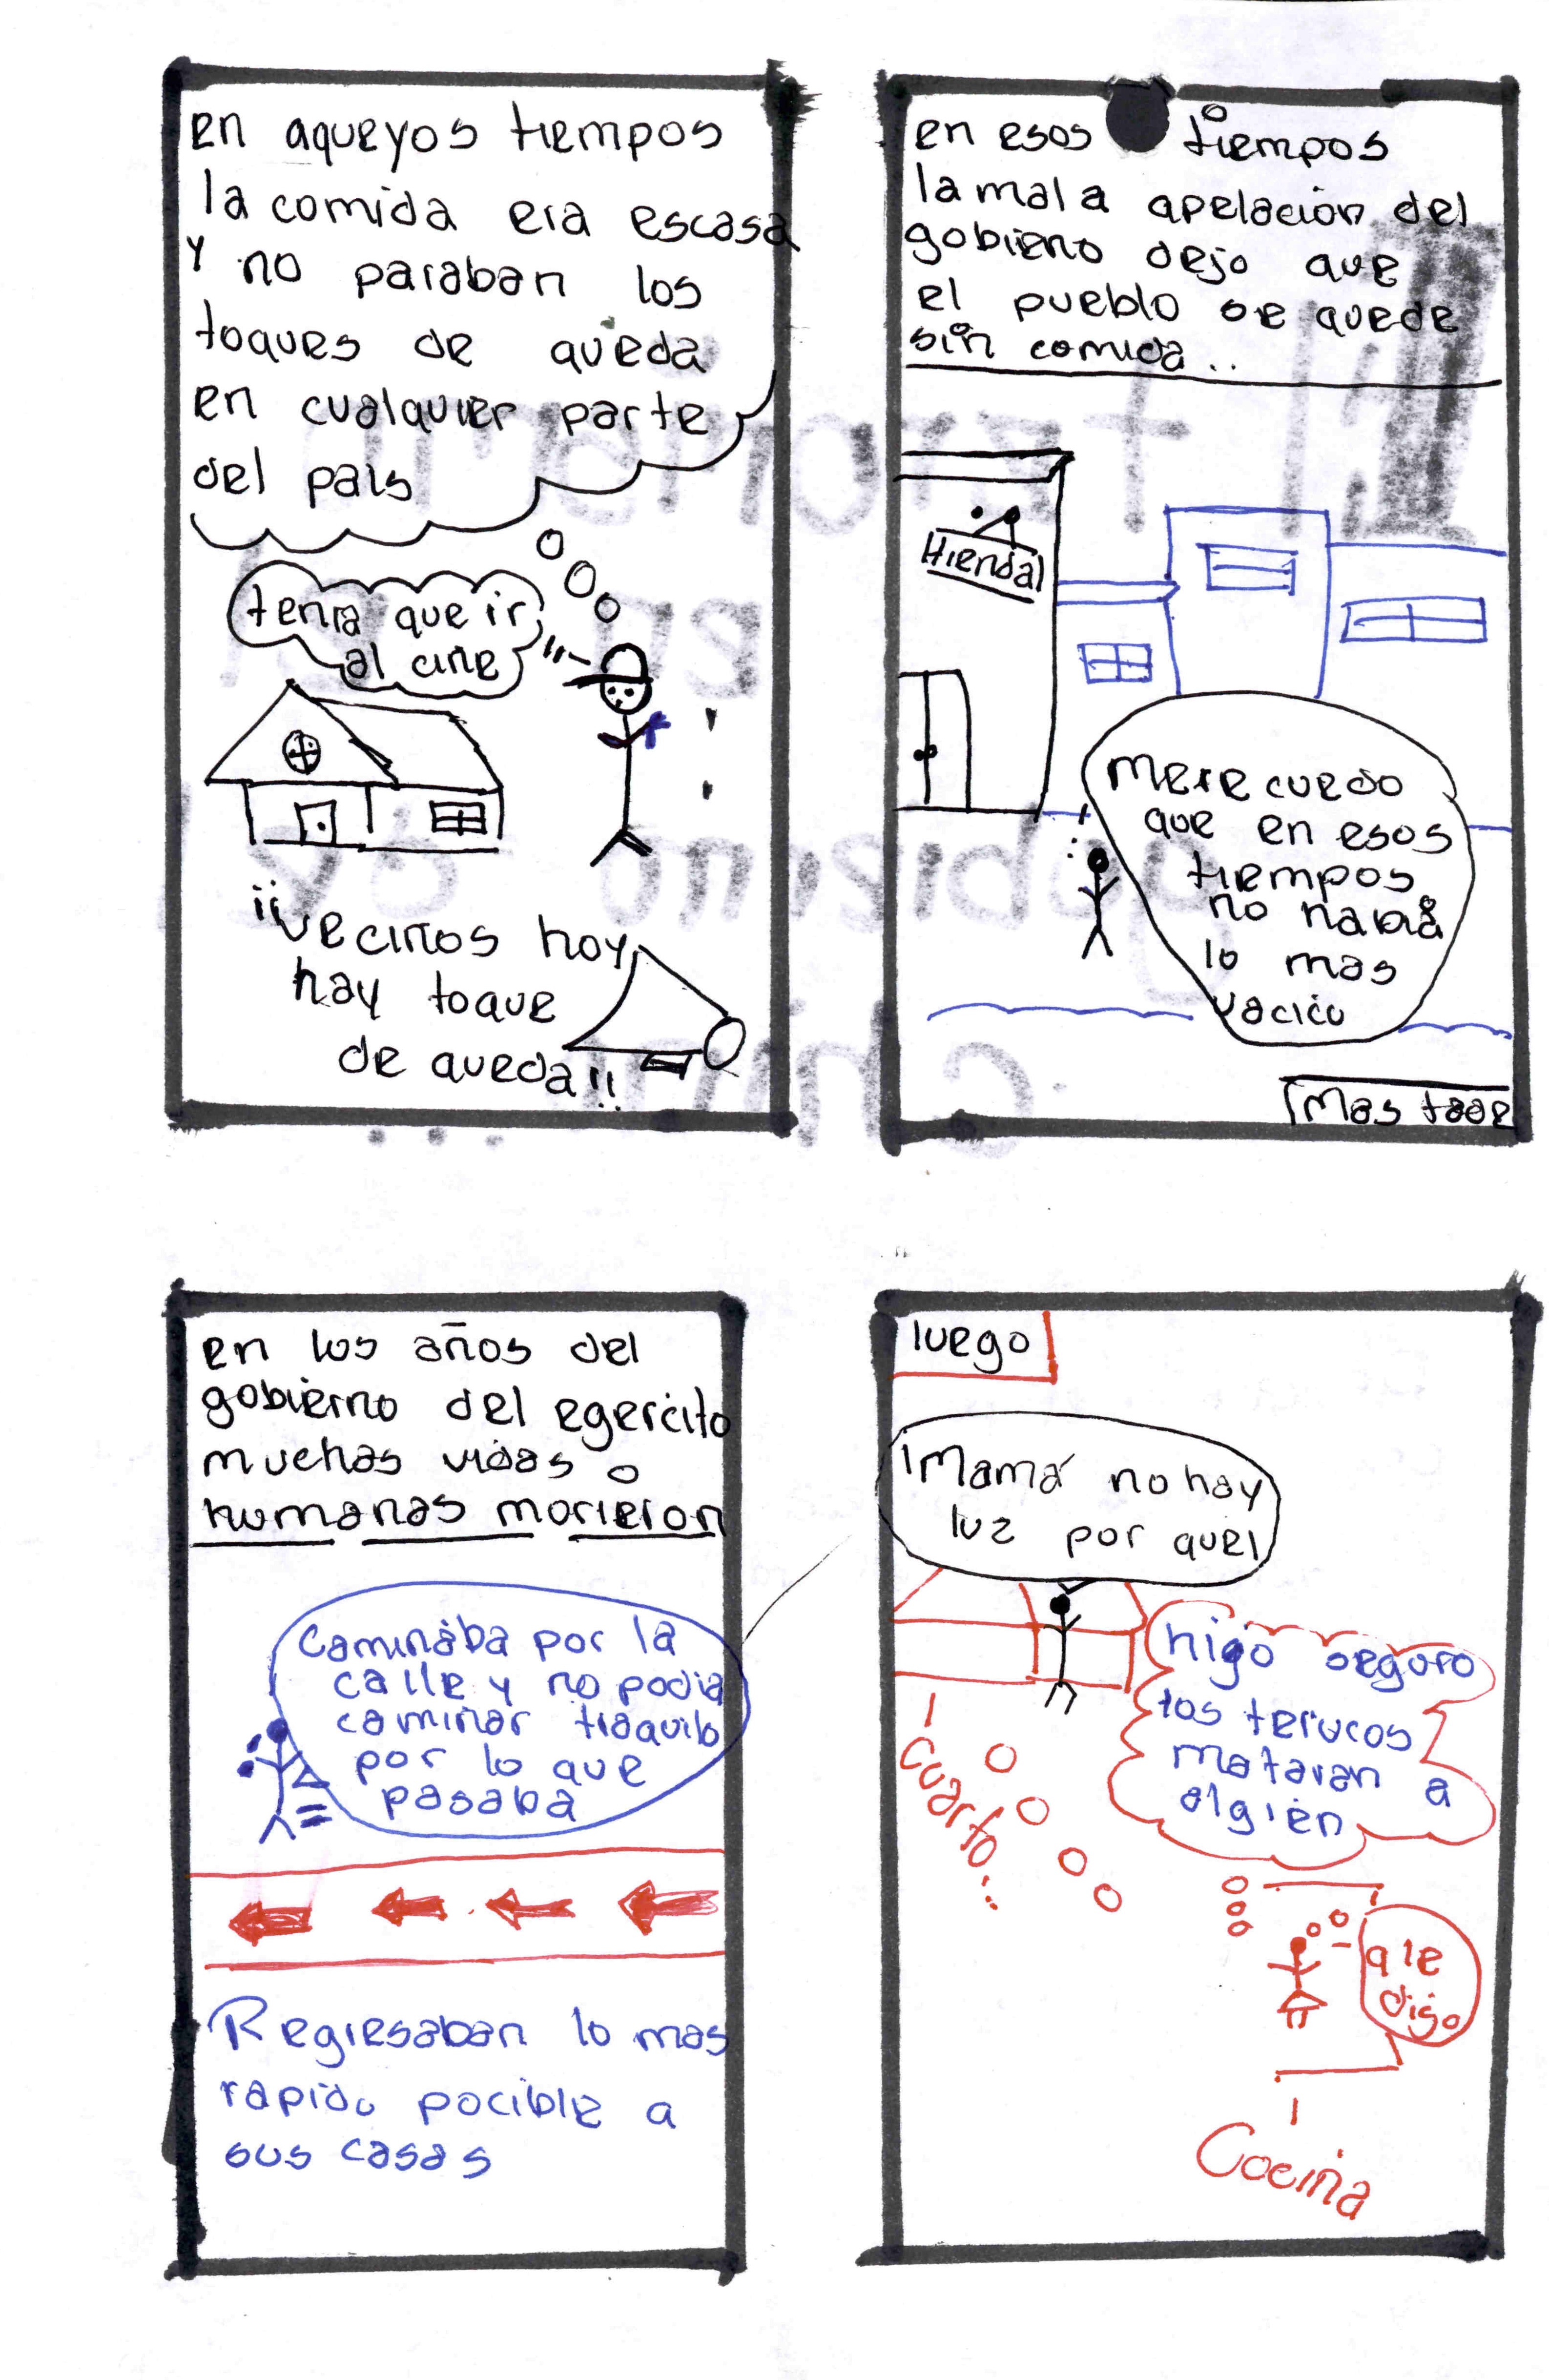 en aqueyos tiempos
la comida era escasa
y no paraban los
toques de queda
en cualquier parte
del pais
tenia que ir
al cine
¡¡vecinos hoy
hay toque
de queda!!
en esos tiempos
la mala apelacion del
gobierno dejo que
el pueblo se quede
sin comida..
Hienda
Merecuedo
que en esos
tiempos
no habia
lo mas
vacico
Mas tade
en los años del
gobierno del egercito
muchas vidas
humanas morieron
Caminaba por la
calle y no podia
caminar traquilo
por lo que
pasaba
Regresaban lo mas
rapido pocible a
sus casas
luego
¡Mamá no hay
luz por que!
higo seguro
los terucos
mataran a
algien
cuarto...
q le
digo
Cocina